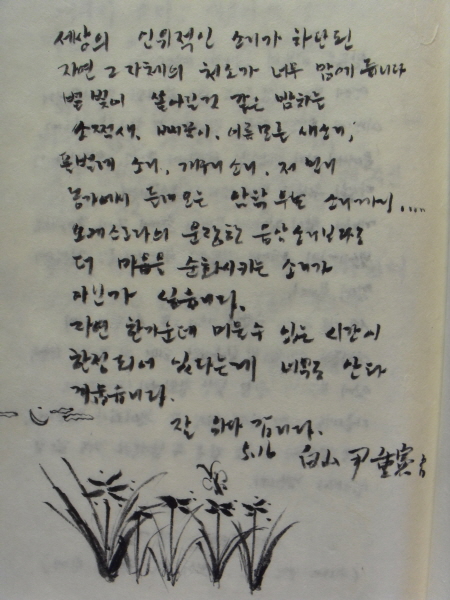 세상의 인위적인 소리가 차단된
자연 그 자체의 청소가 너무 맘에 듭니다
별빛이 쏟아질것 같은 밤하늘
소쩍새, 뻐꾹이, 이름모를 새소리,
풀벌레 소리, 개구리 소리, 저 멀리
농가에서 들려오는 소리까지.....
오케스트라의 웅장한 음악소리보다도
더 마음을 순화시키는 소리가
아닌가 싶습니다.
자연 한가운데 머물수 있는 시간이
한정되어 있다는게 너무도 안타
까웁습니다.
잘 쉬다 갑니다.
5.16 白山 尹重憲